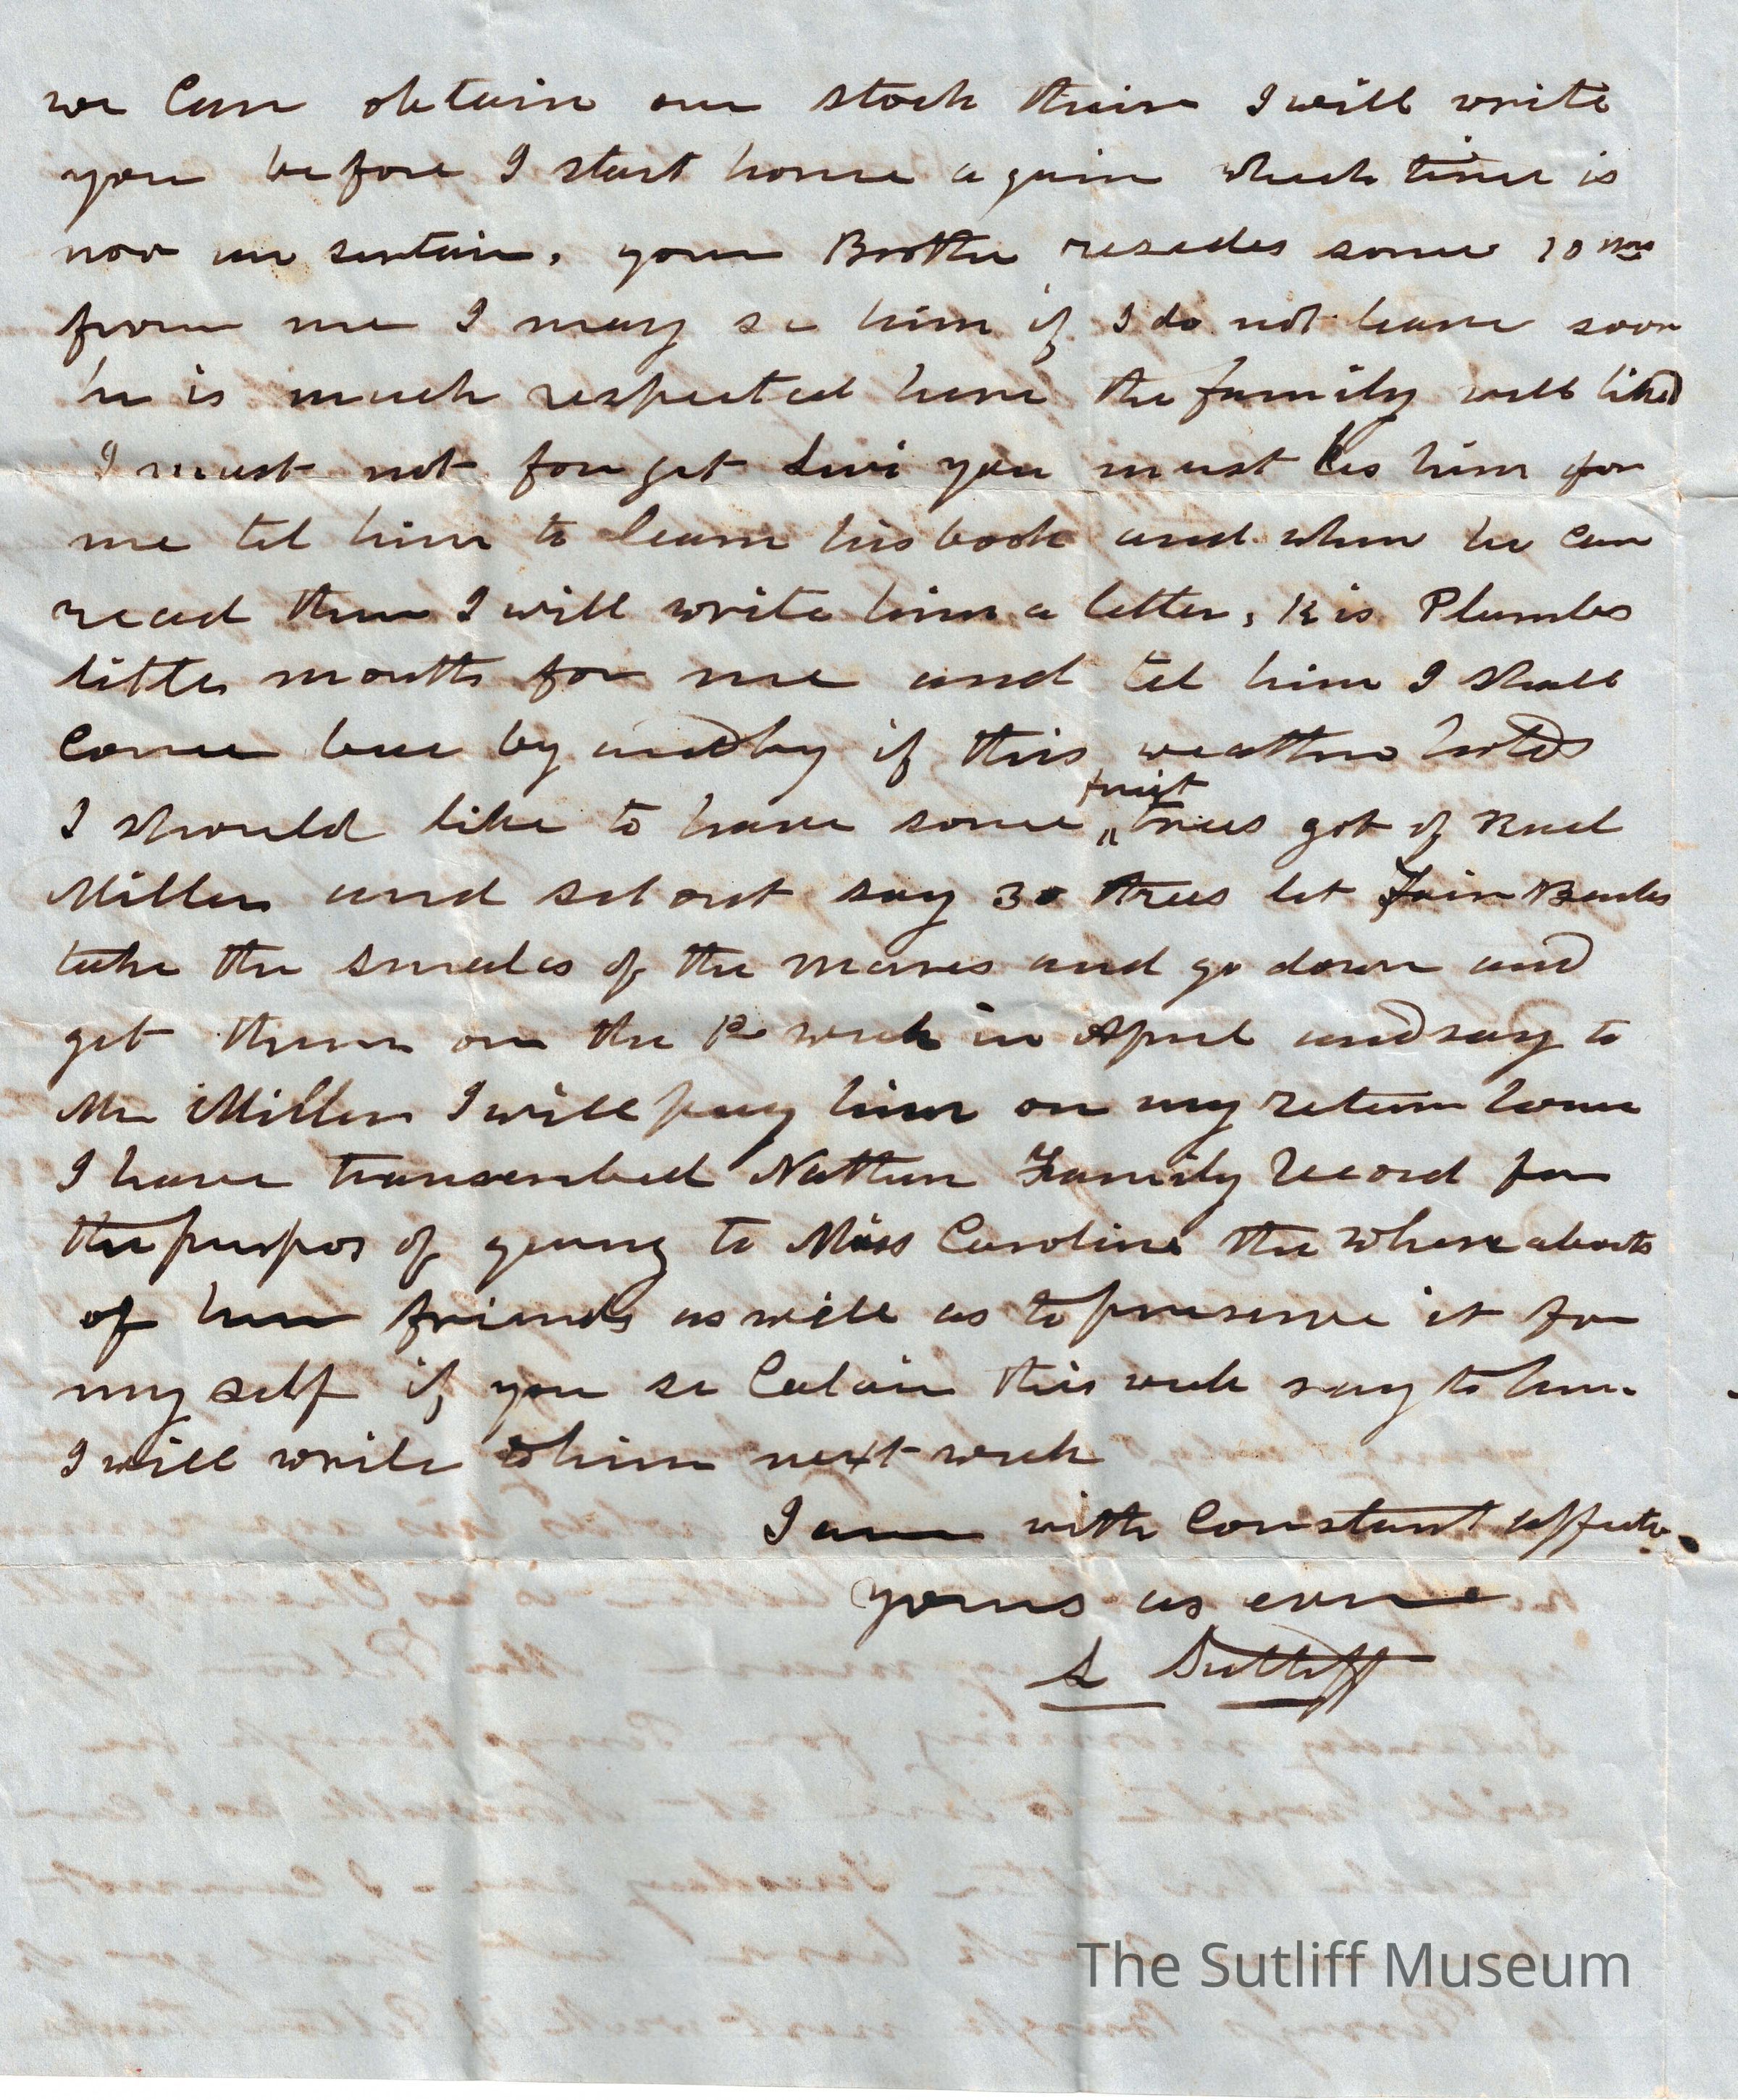 we Can obtain our stock thair I will write
you before I start home a gain which time is
now un sertain. your Brother resedes some 10 ms
from me I may se him if I do not leave soon
he is much respected here the family well liked
I must not for get Livi you must kis him for
me tel him to learn his book and when he can
read then I will write him a letter, Kis Plumbs
little mouth for me and tel him I shall
Come hee by and by if this weather holds
I should like to have some fruit trees got of Ruel
Miller and set out say 30 trees let Fair Banks
take the smales of the mares and go down and
get them on the week in April and say to
Mr Miller I will pay him on my return home
I have transcribed Nathan Family Record for
the purpos of geving to Miss Caroline the whereabouts
of her friends as well as to preserve it for
my self if you se Calvin this week say to him
I will write to him next week
I am with Constant
yours as ever
L Sutliff
The Sutliff Museum